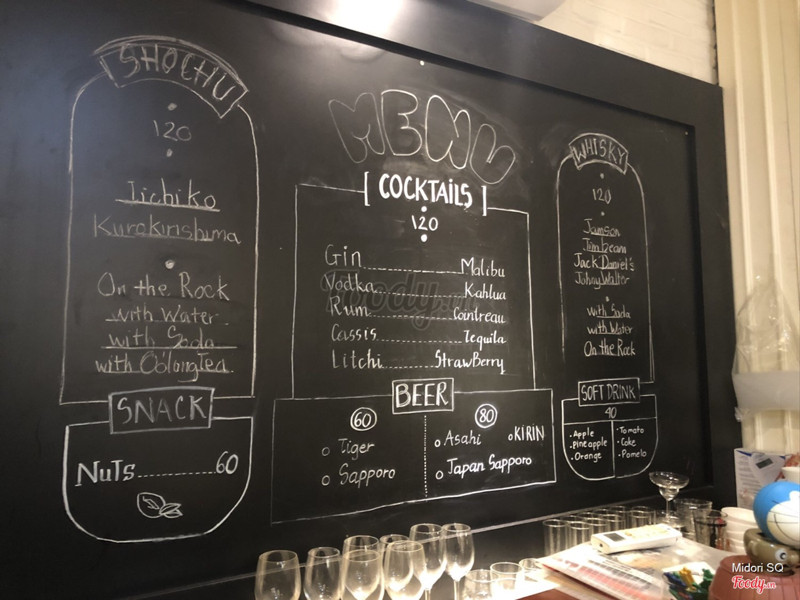 MENU
SHOCHU
120
Iichiko
Kurokirishima
On the Rock
with Water
with Soda
with Oolong Tea
SNACK
Nuts 60
[COCKTAILS]
120
Gin Malibu
Vodka Kahlua
Rum Cointreau
Cassis Tequila
Litchi StrawBerry
BEER
60
Tiger
Sapporo
80
Asahi KIRIN
Japan Sapporo
WHISKY
120
Jamson
Jim beam
Jack Daniel's
Johny Walter
with Soda
with Water
On the Rock
SOFT DRINK
40
Apple
Pineapple
Orange
Tomato
Coke
Pomelo
Foody.vn
Midori SQ
Foody.vn